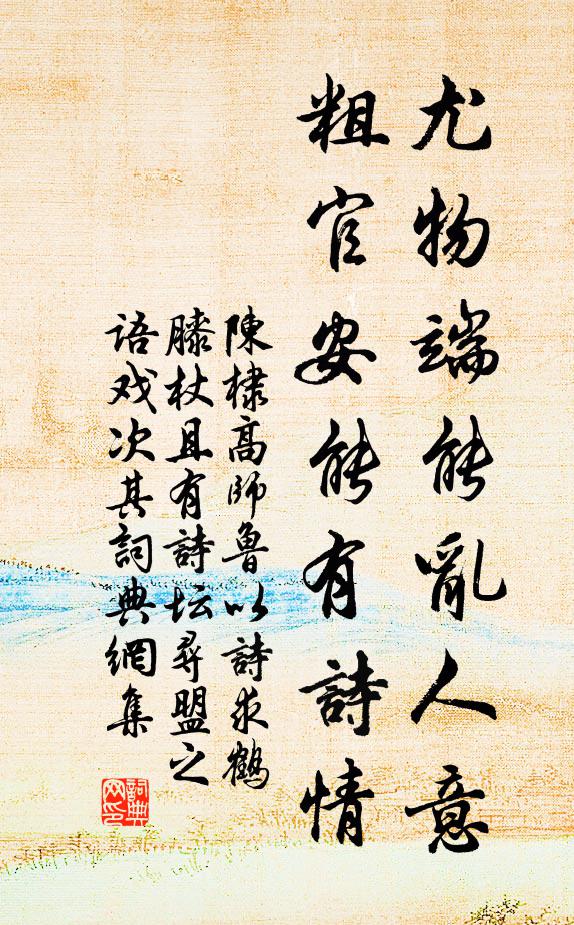 尤物端能亂人意
粗官安能有詩情
陳棣高師魯以詩求鶴
膝杖且有詩坛尋盟之
语戏次其詞典網集
詞典
网印